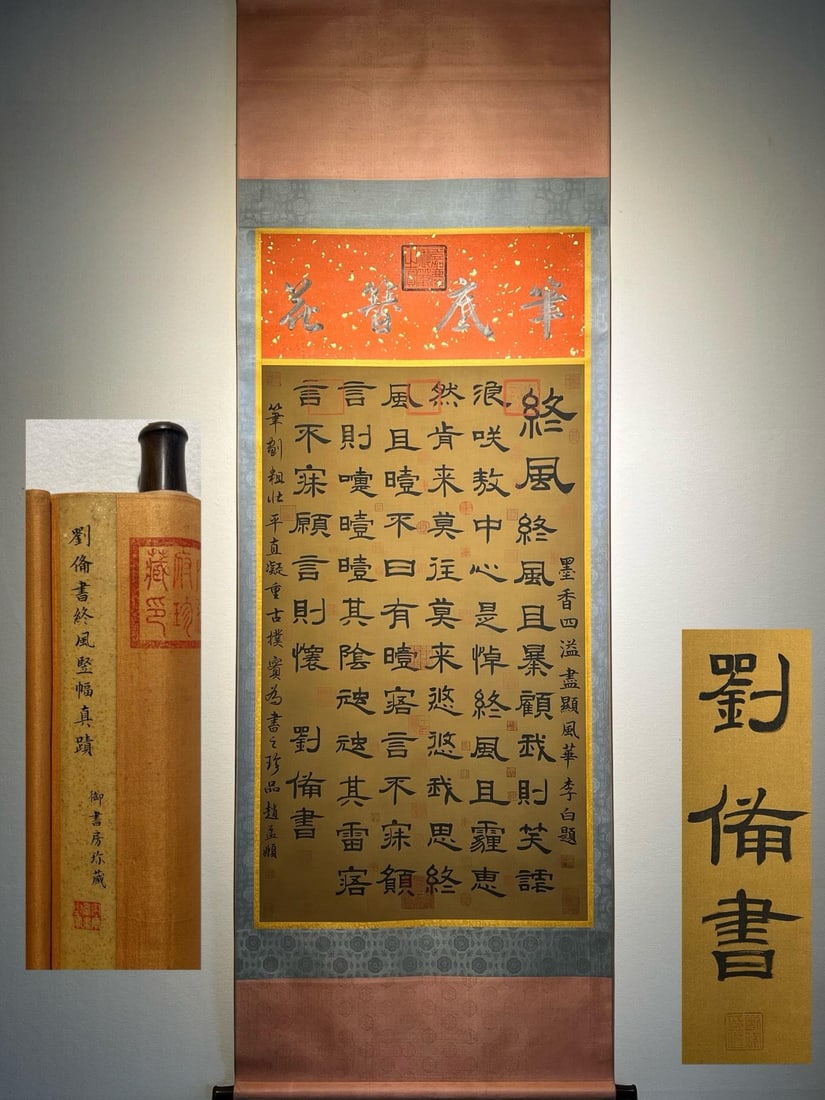 筆底簪花
墨香四溢盡顯風華 李白題
終風終風且暴顧我則笑謔
浪咲敖中心是悼終風且霾惠
然肯来莫往莫来悠悠我思終
風且曀不日有曀寤言不寐願
言則嚏曀曀其陰虺虺其雷寤
言不寐願言則懷 劉備書
筆劃粗壯平直凝重古樸實為書之珍品趙孟頫
劉備書終風豎幅真蹟
御書房珍藏
劉備書